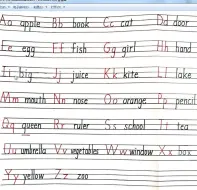 Aa apple Bb book Cc cat Dd door
Ee egg Ff fish Gg girl Hh hand
Ii big Jj juice Kk kite Ll lake
Mm mouth Nn nose Oo orange Pp pencil
Qq queen Rr ruler Ss school Tt tea
Uu umbrella Vv vegetables Ww window Xx box
Yy yellow Zz zoo